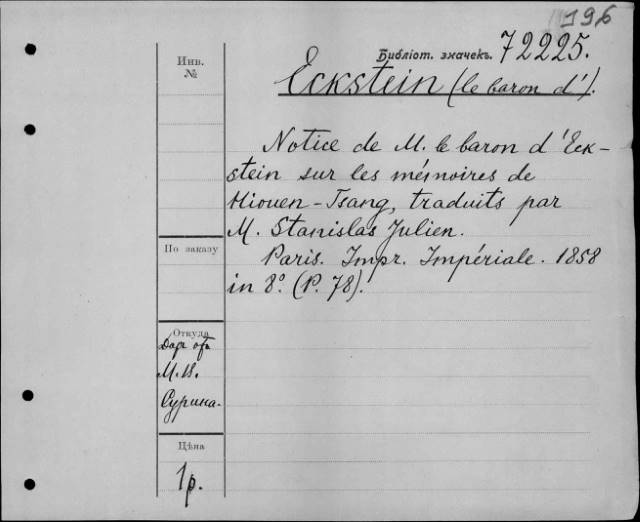 196
Библіот. значекъ. 72225.
Инв. №
Eckstein (le baron d').
Notice de M. le baron d'Eck-
stein sur les mémoires de
Hiouen-Tsang, traduits par
M. Stanislas Julien.
По заказу
Paris. Impr. Impériale. 1858
in 8º. (P. 78).
Откуда
Даръ отъ
М. В.
Сурина.
Цѣна
1 р.